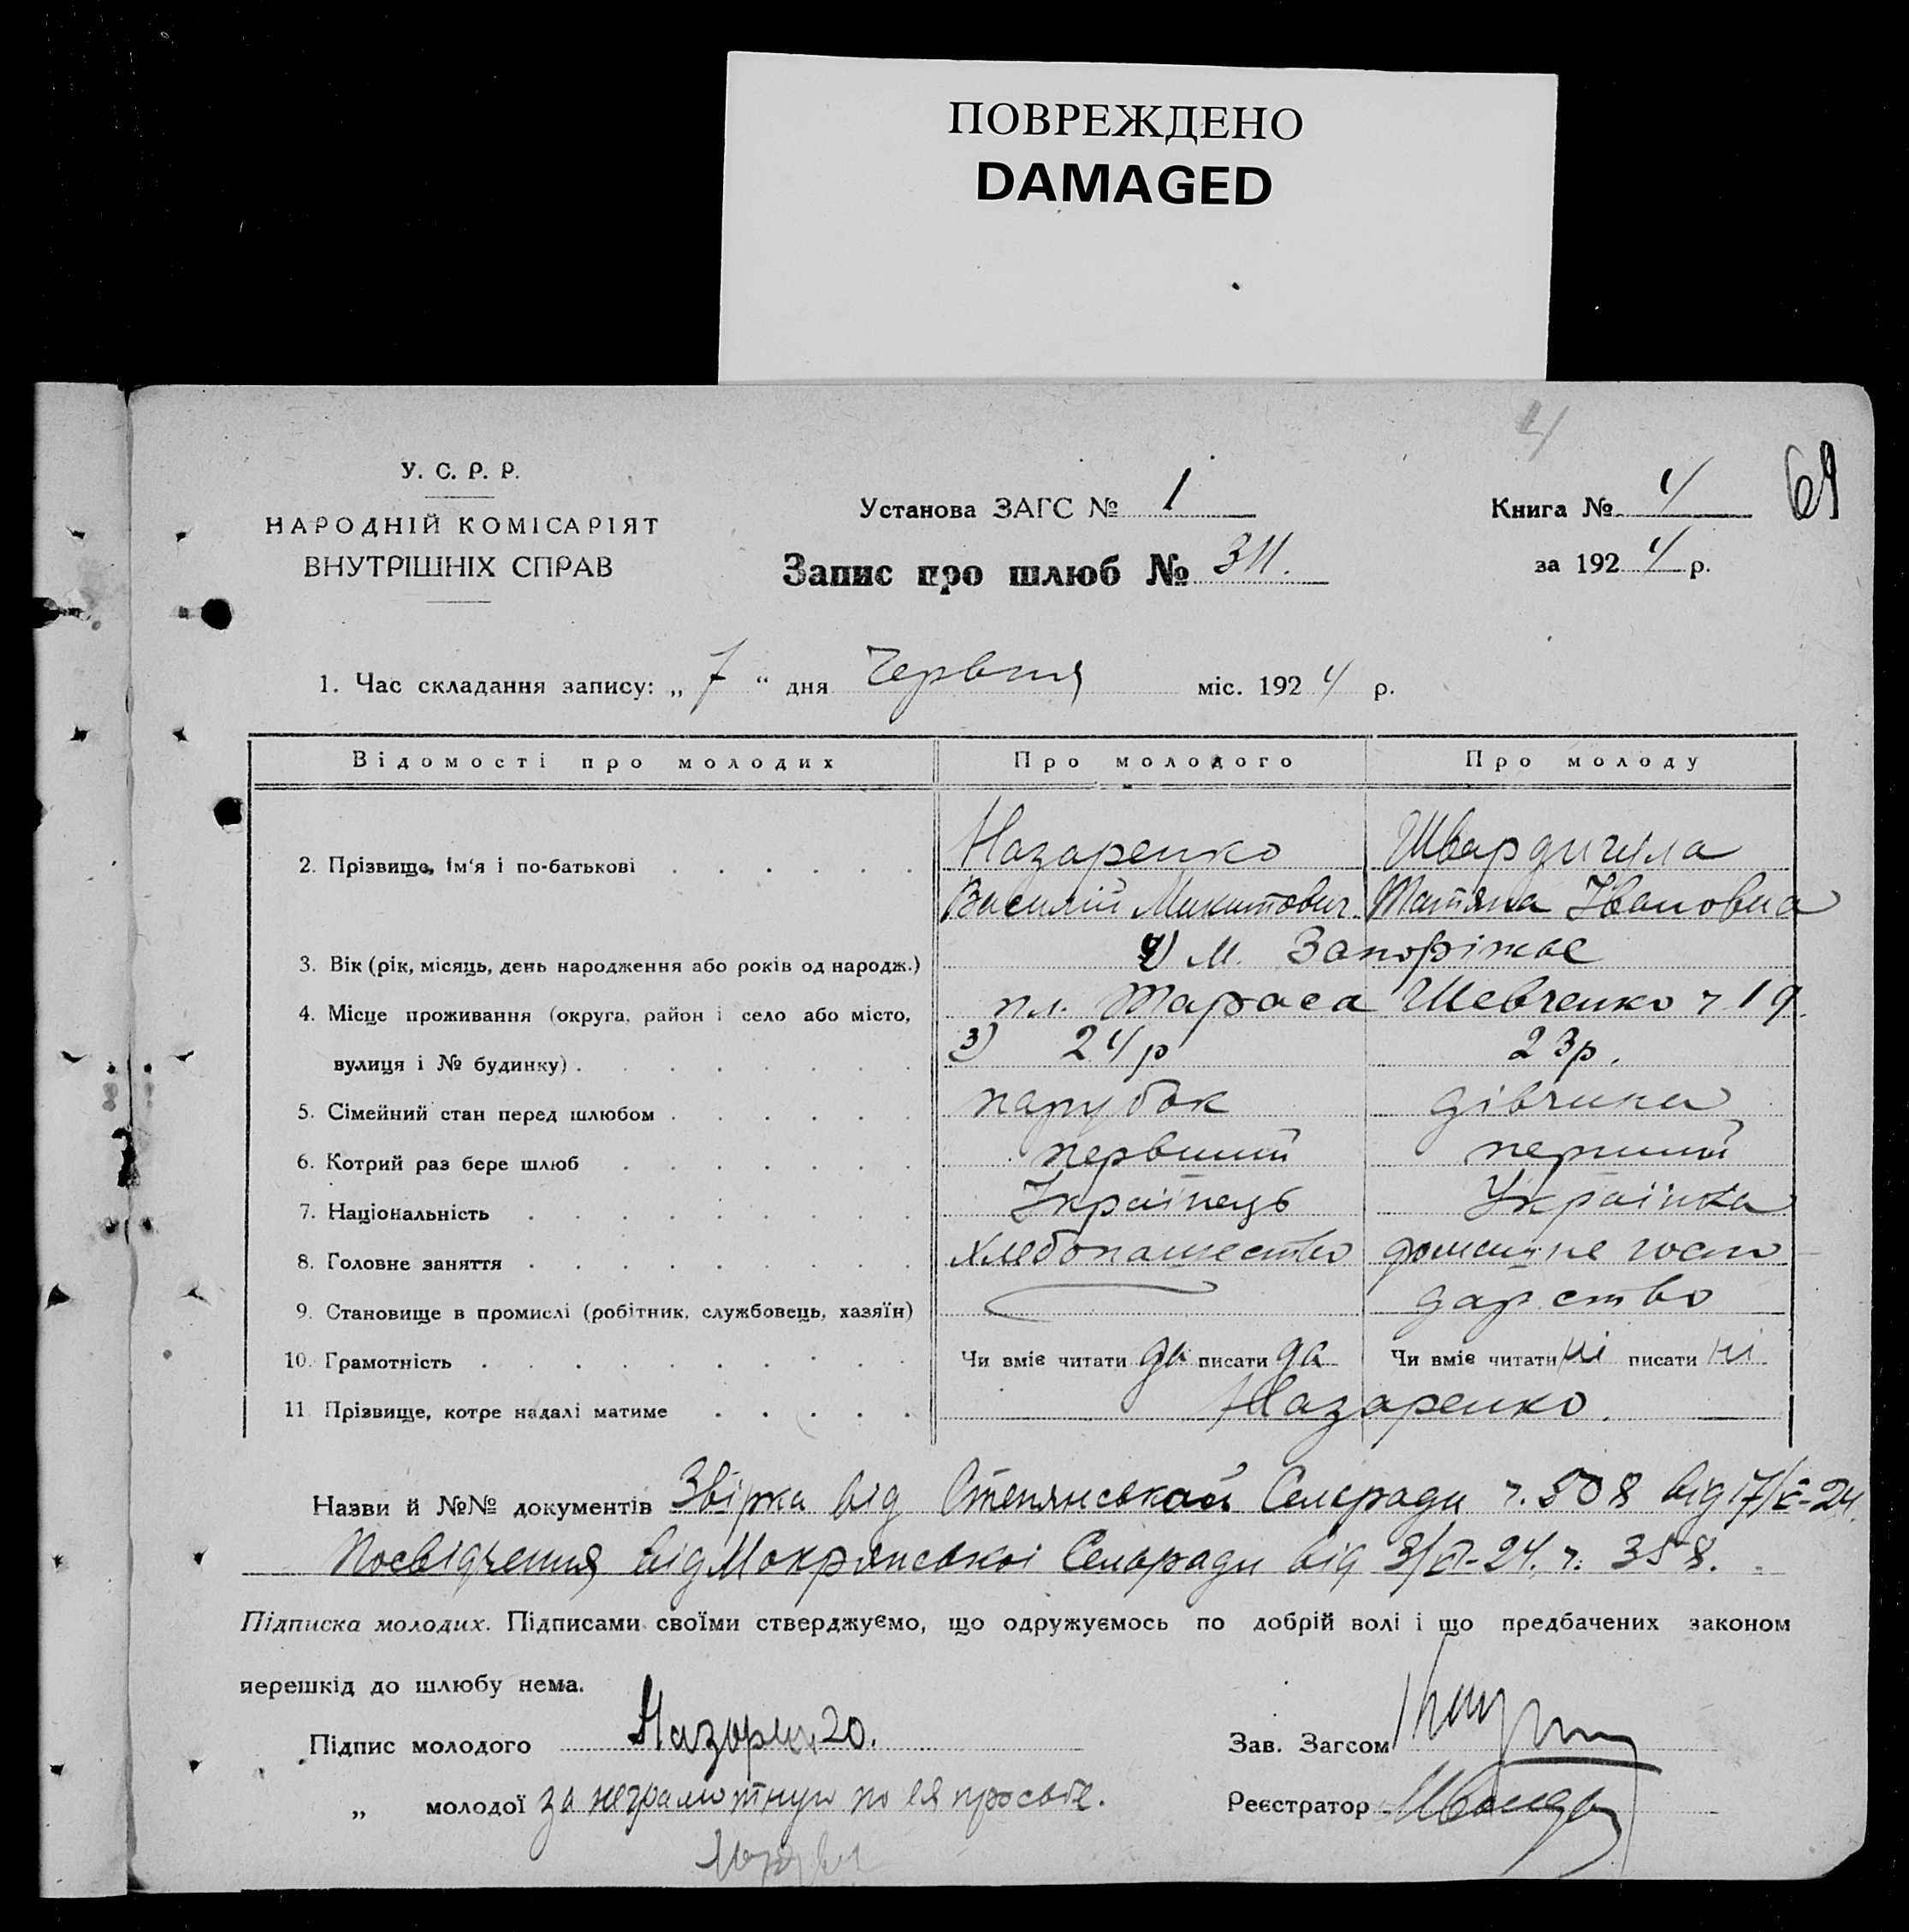 ПОВРЕЖДЕНО
DAMAGED
4
69
У. С. Р. Р.
НАРОДНІЙ КОМІСАРІЯТ
ВНУТРІШНІХ СПРАВ
Установа ЗАГС № 1
Запис про шлюб № 311.
Книга № 4
за 1924 р.
1. Час складання запису: „ 7 “ дня Червня міс. 1924 р.
Відомості про молодих Про молодого Про молоду
2. Прізвище, ім'я і по-батькові Назаренко Швардигула
Василий Микитович Татяна Івановна
3. Вік (рік, місяць, день народження або років од народж.) 4) м. Запоріжье
4. Місце проживання (округа, район і село або місто, пл. Тараса Шевченко ч 19.
вулиця і № будинку) 3) 24 р 23 р.
5. Сімейний стан перед шлюбом парубок дівчина
6. Котрий раз бере шлюб первший перший
7. Національність Українець Українка
8. Головне заняття хлебопашество домашне госпо
9. Становище в промислі (робітник, службовець, хазяїн) дарство
10. Грамотність Чи вміє читати да писати да Чи вміє читати ні писати ні
11. Прізвище, котре надалі матиме Назаренко.
Назви й №№ документів Звірка від Степянськой Селєради ч. 508 від 17/V-24.
Посвідчення від Мокрянської Сельради від 3/VI-24. ч. 358.
Підписка молодих. Підписами своїми стверджуємо, що одружуємось по добрій волі і що предбачених законом
перешкід до шлюбу нема.
Підпис молодого Назаренко. Зав. Загсом
„ молодої за неграмотную по ея просьбе. Реєстратор